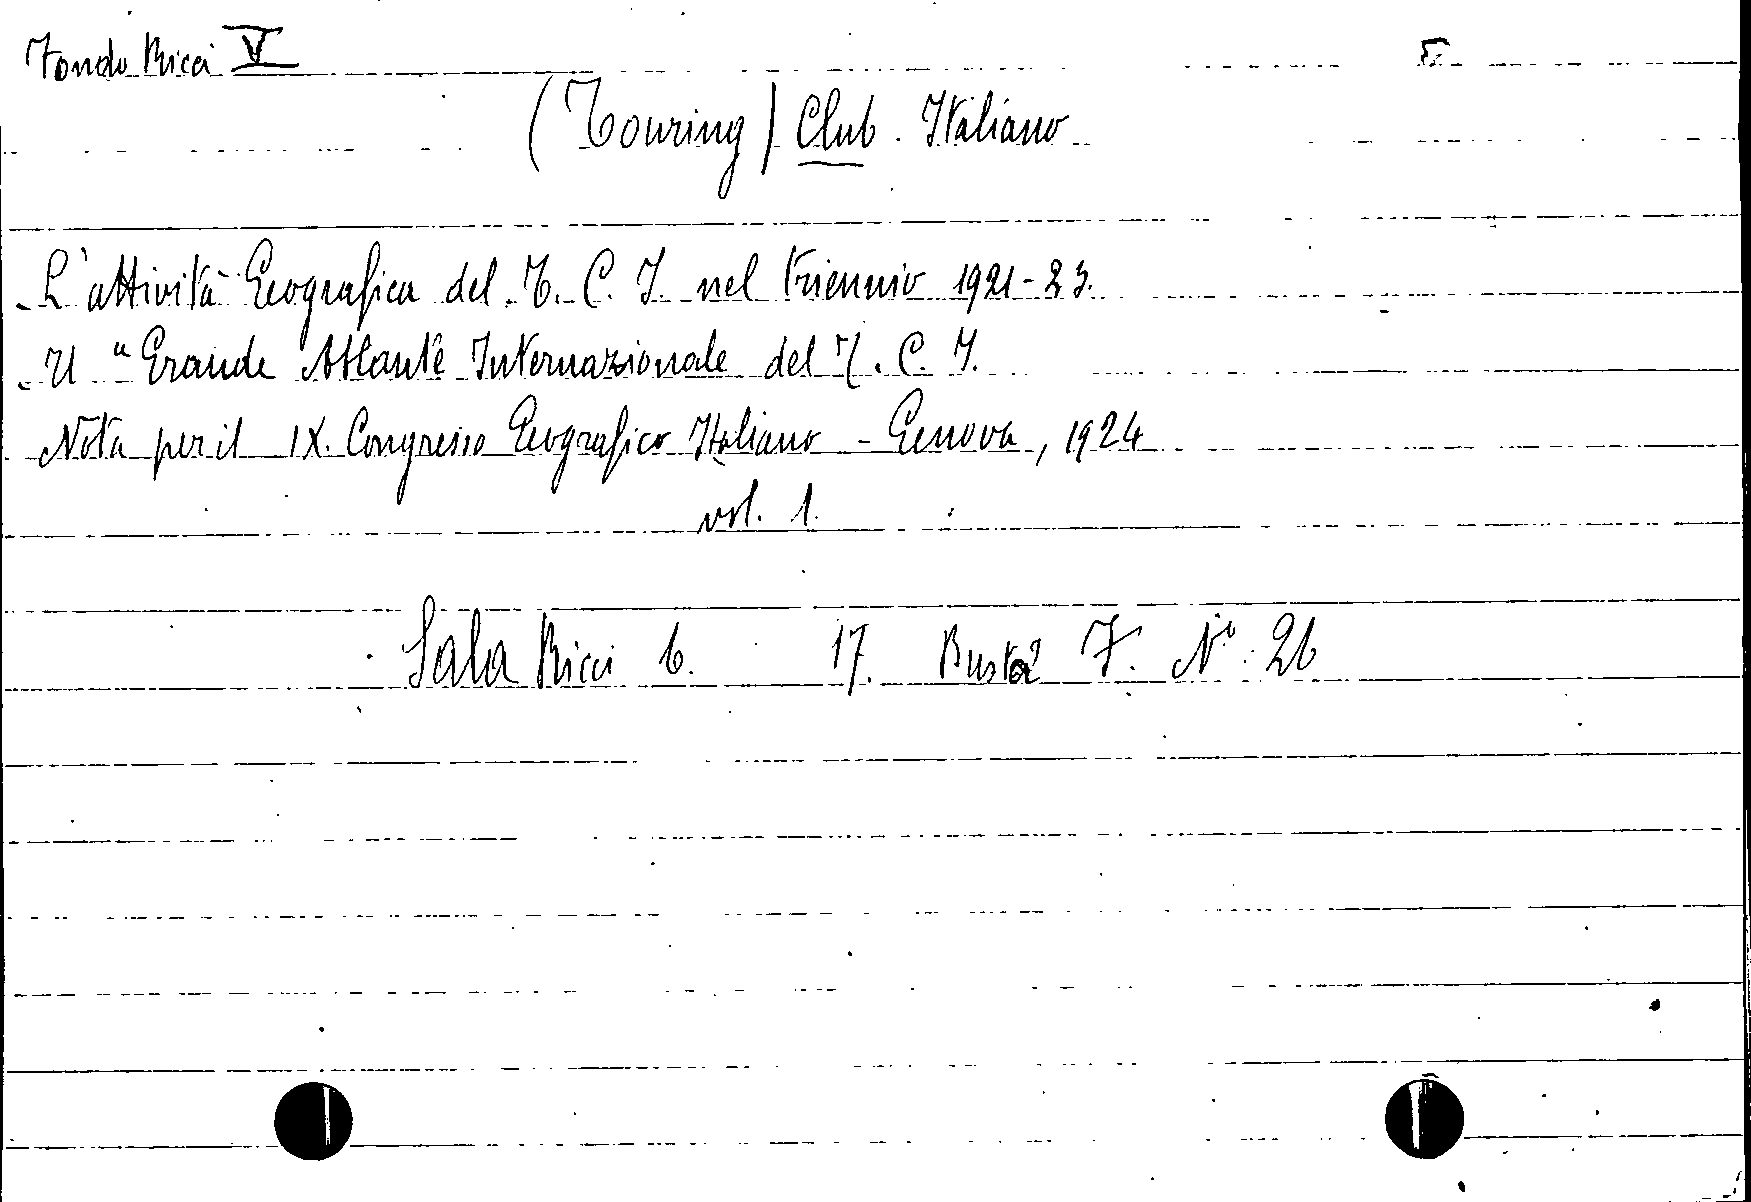 Fondo Ricci V
(Touring) Club Italiano
L'attività Geografica del T. C. I. nel triennio 1921-23.
Il "Grande Atlante Internazionale del T. C. I.
Nota per il IX. Congresso Geografico Italiano - Genova, 1924
vol. 1.
Sala Ricci 6. 17. Busta 7. N° 26